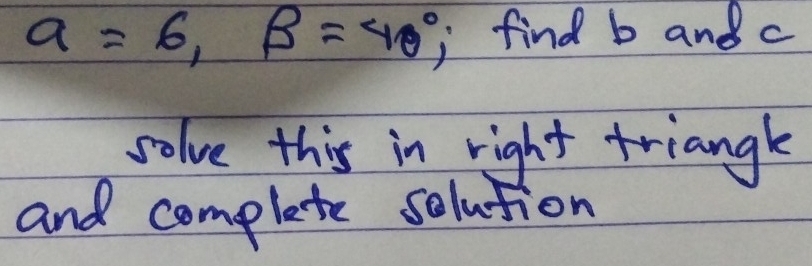 a = 6, β = 40°; find b and c
solve this in right triangle
and complete solution